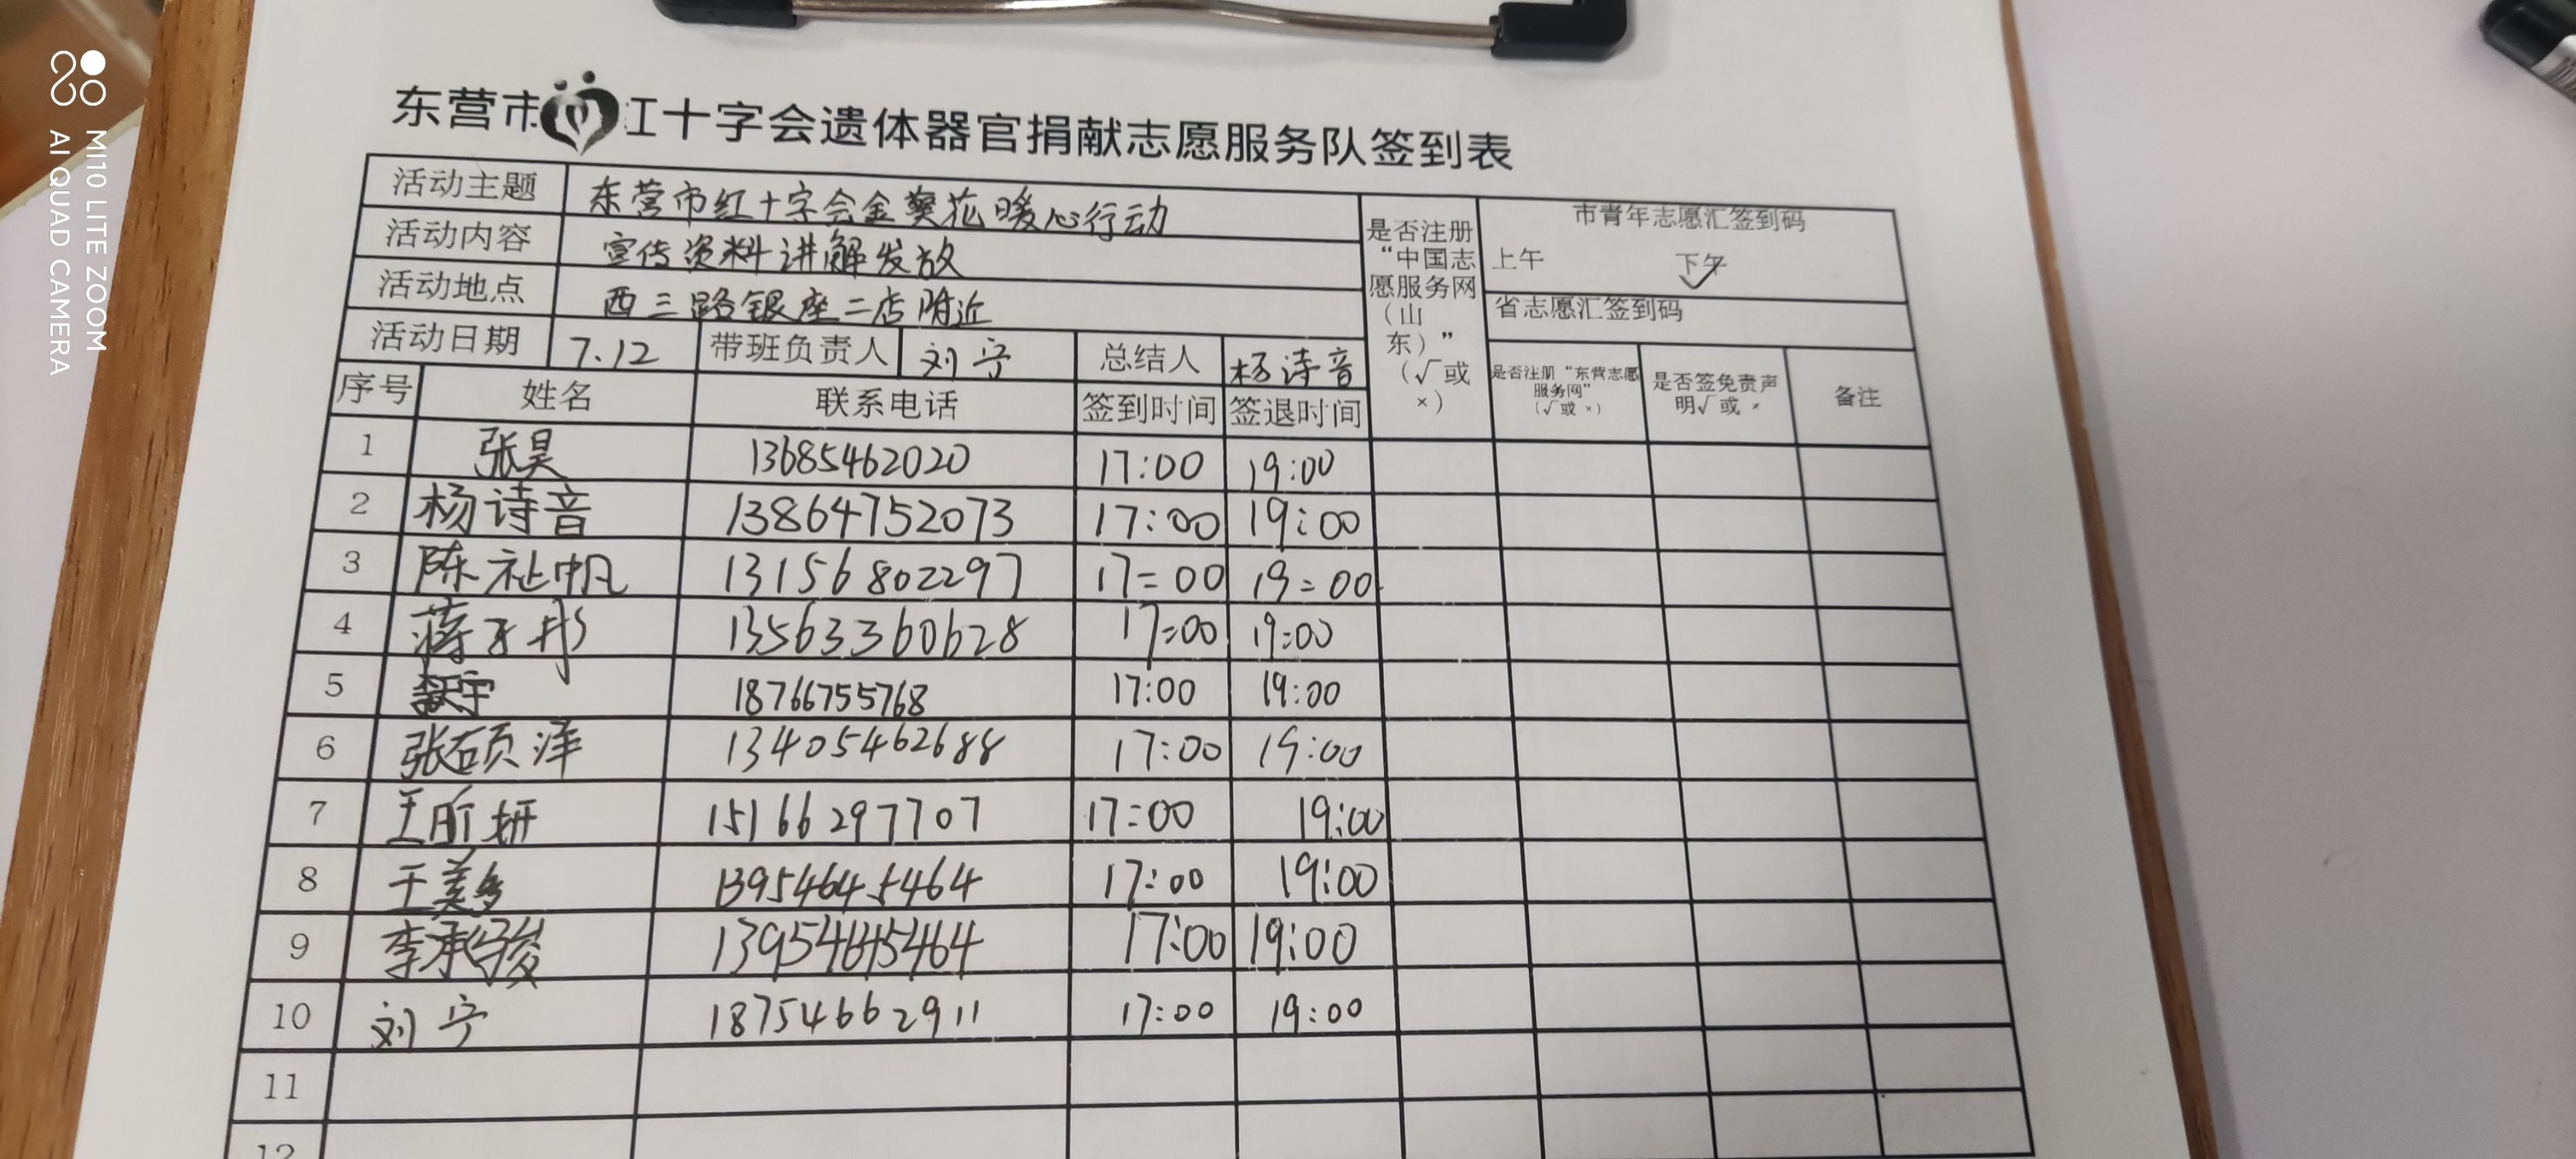 东营市红十字会遗体器官捐献志愿服务队签到表
活动主题 东营市红十字会金葵花暖心行动
活动内容 宣传资料讲解发放
活动地点 西三路银座二店附近
活动日期 7.12 带班负责人 刘宁 总结人 杨诗音
是否注册“中国志愿服务网（山东）”（√或×）
市青年志愿汇签到码
上午 下午 ✓
省志愿汇签到码
是否注册“东营志愿服务网”（√或×） 是否签免责声明√或× 备注
序号 姓名 联系电话 签到时间 签退时间
1 张昊 13685462020 17:00 19:00
2 杨诗音 13864752073 17:00 19:00
3 陈祉帆 13156802297 17:00 19:00
4 蒋 彤 13563360628 17:00 19:00
5 18766755768 17:00 19:00
6 张硕洋 13405462688 17:00 19:00
7 王昕妍 15166297707 17:00 19:00
8 王美多 13954645464 17:00 19:00
9 李承骏 13954645464 17:00 19:00
10 刘宁 18754662911 17:00 19:00
11
12
MI10 LITE ZOOM
AI QUAD CAMERA